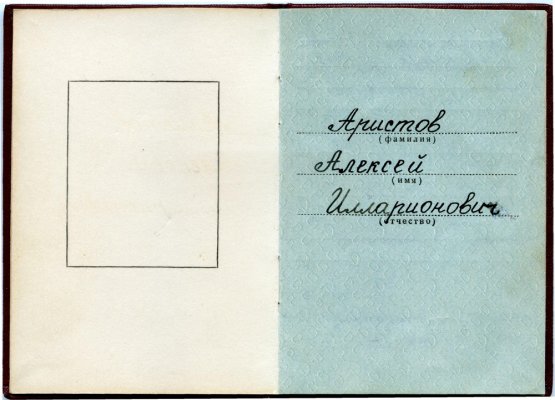 Аристов
(фамилия)
Алексей
(имя)
Илларионович
(отчество)